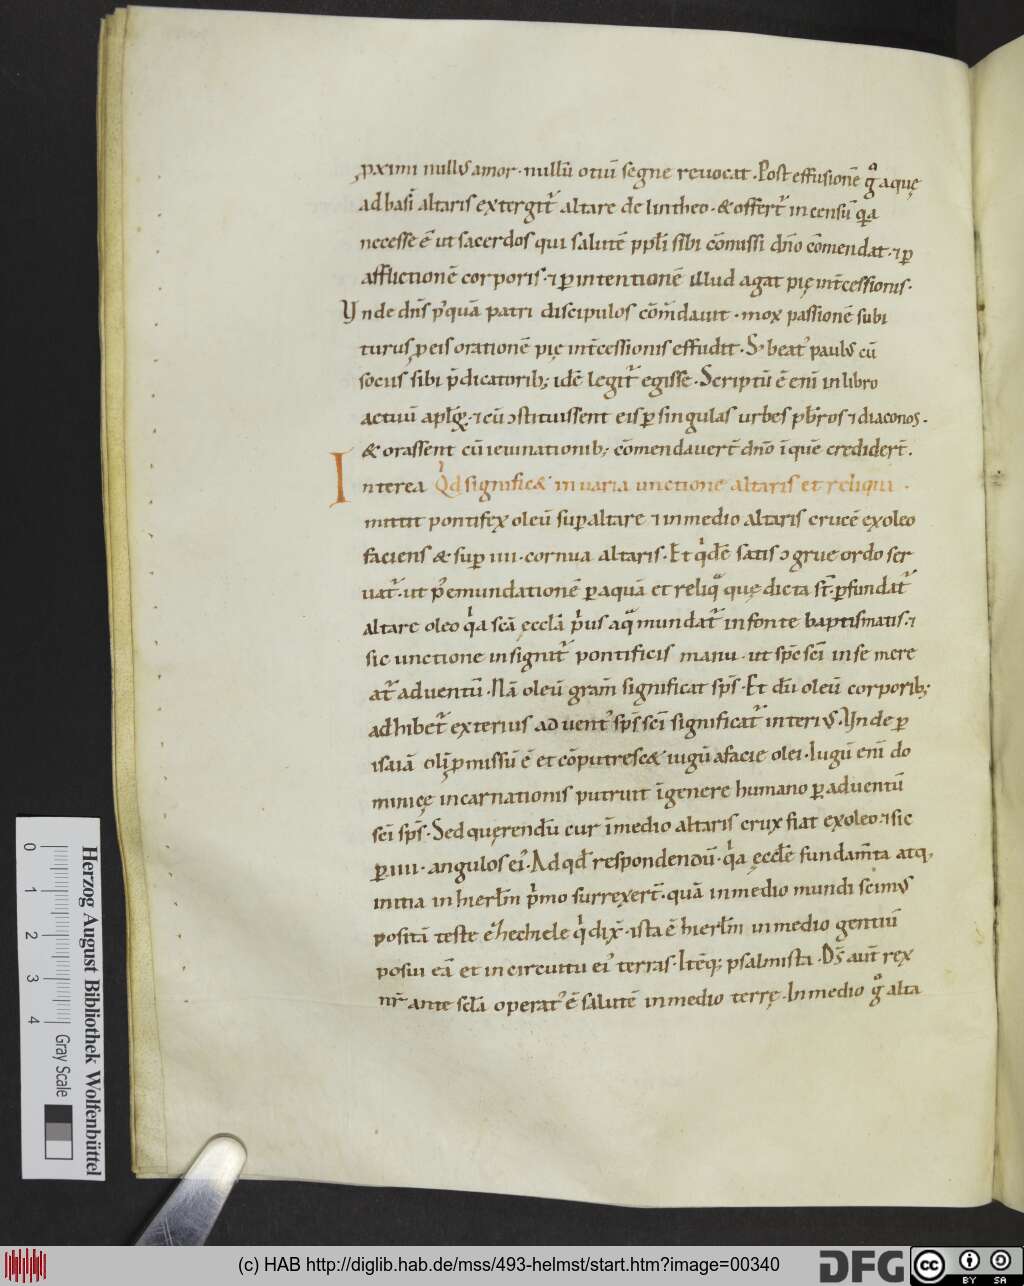 ꝓximi nullus amor · nullū otiū segne reuocat · Post effusionē gͦ aquę
ad basī altaris extergit᷑ altare de lintheo · & offert᷑ incensū qͣa
necesse ē ut sacerdos qui salutē ppłi sibi cōmissi dn̄o cōmendat · ⁊ ꝑ
afflictionē corporis · ⁊ ꝑ intentionē illud agat pię int̄cessionis ·
Vnde dn̄s pꝰquā patri discipulos cōm̄dauit · mox passionē subi
turus ꝓ eis orationē pię int̄cessionis effudit · Sꝫ beatꝰ paulus cū
sociis sibi p̄dicatorib; idē legit᷑ egisse · Scriptū ē enī in libro
actuū apłoꝝ · ⁊ cū ↄstituissent eis ꝑ singulas urbes pb̄ros ⁊ diaconos ·
& orassent cū ieiunationib; cōmendauer̄t dn̄o ī quē credider̄t ·
Interea Qͥd signific& in uaria unctione altaris et reliqua ·
mittit pontifex oleū suꝑ altare ⁊ in medio altaris crucē ex oleo
faciens & suꝑ IIII · cornua altaris · Et qͥdē satis ↄgrue ordo ser
uat᷑ · ut pꝰ emundationē ꝑ aquā et reliqͣ quę dicta st̄ · ꝑfundat᷑
altare oleo qͥa scā ęcclā pͥus aqͣ mundat᷑ in fonte baptismatis · ⁊
sic unctione insignit᷑ pontificis manu · ut sp̄c scī in se mere
at᷑ aduentū · Nā oleū gram̄ significat sp̄s · Et dū oleū corporib;
adhibet᷑ exterius aduentꝰ sp̄s scī significat᷑ interius · Vnde ꝑ
isaiā olī ꝓmissū ē et cōputresc& iugū a facie olei · Iugū enī do
minicę incarnationis putruit ī genere humano ꝑ aduentū
scī sp̄s · Sed querendū cur ī medio altaris crux fiat ex oleo ⁊ sic
ꝑ IIII · angulos eiꝰ · Ad qd̄ respondendū · qͥa ęcclē fundam̄ta atq;
initia in hierłm pͥmo surrexer̄t · quā in medio mundi scimus
positā teste ezhechiele qͥ dix̄ · ista ē hierłm in medio gentiū
posui eā et in circuitu eiꝰ terras · Itēq; psalmista · Ds̄ aut̄ rex
nr̄ ante scłā operatꝰ ē salutē in medio terrę · In medio gͦ alta
0 1 2 3 4
Herzog August Bibliothek Wolfenbüttel
Gray Scale
(c) HAB http://diglib.hab.de/mss/493-helmst/start.htm?image=00340
DFG
cc
BY SA